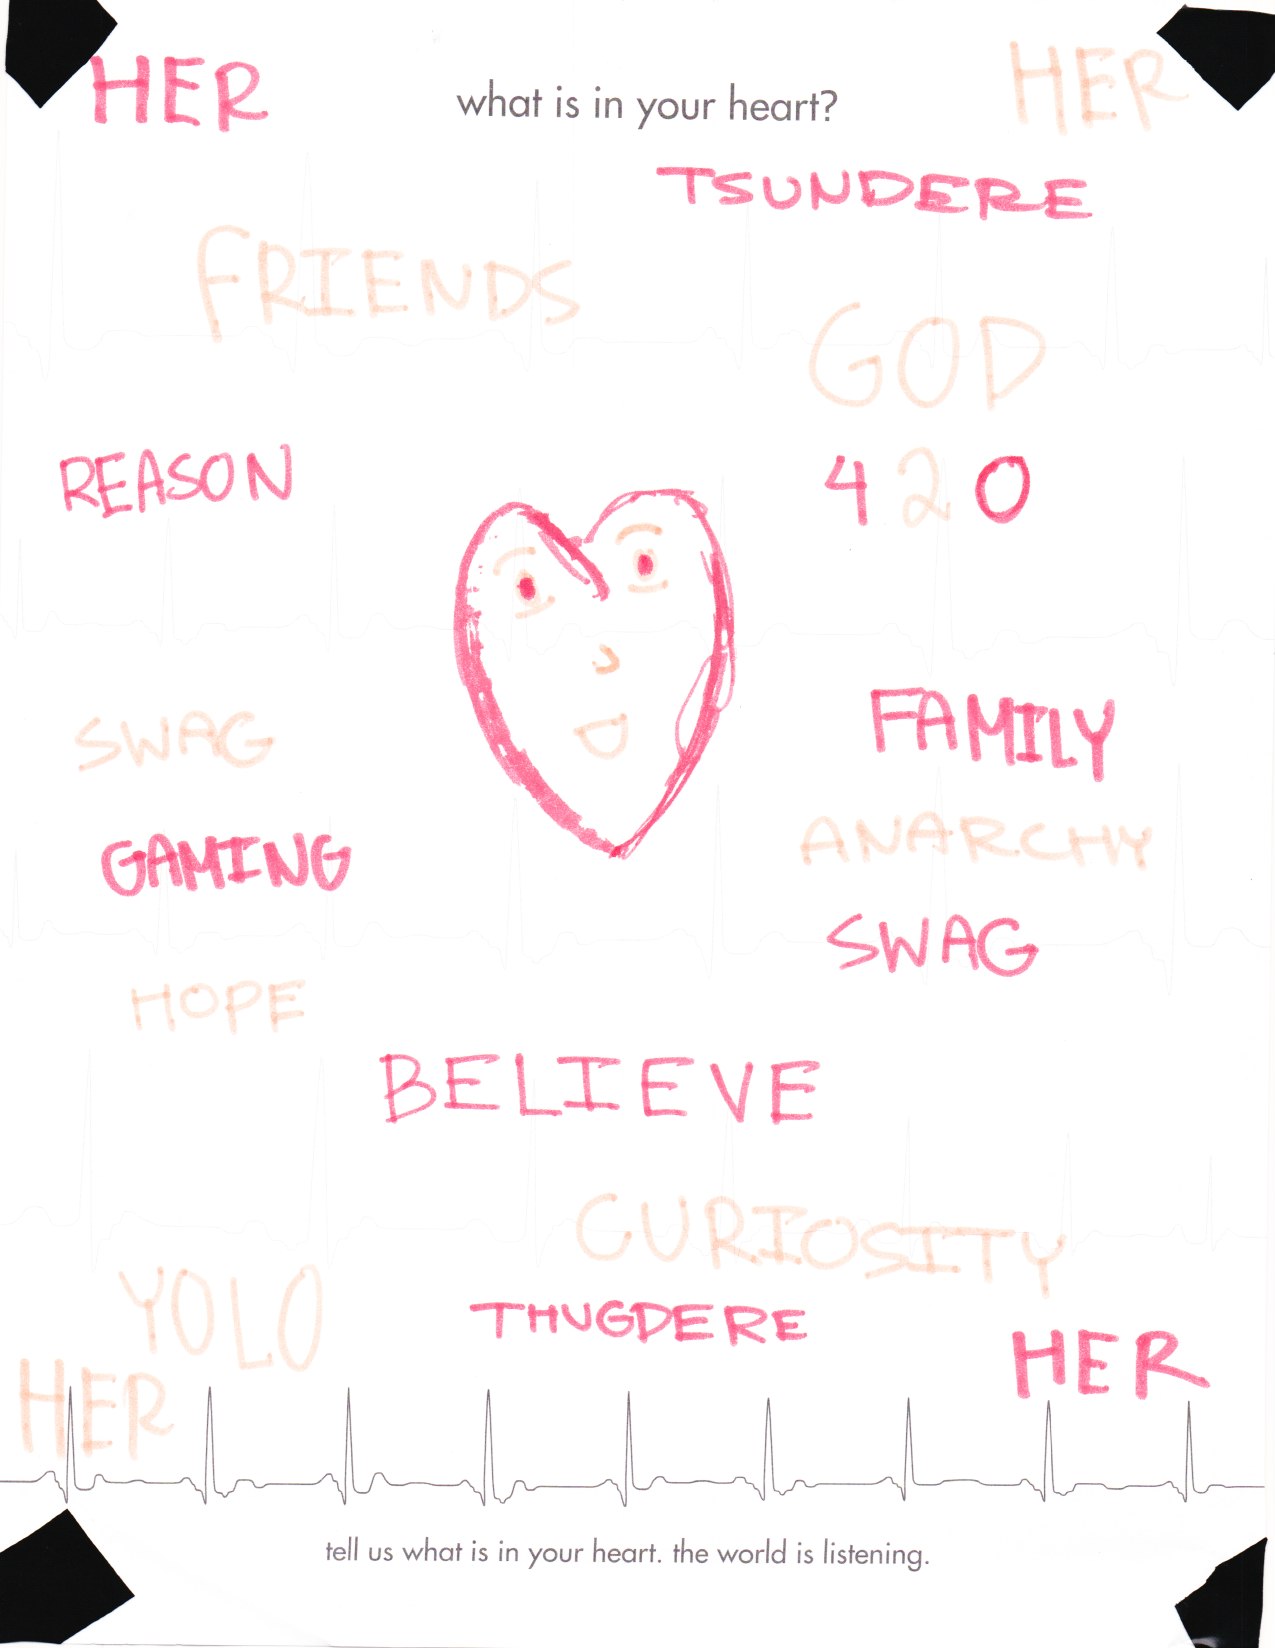 HER
what is in your heart?
HER
TSUNDERE
FRIENDS
GOD
REASON
420
SWAG
FAMILY
GAMING
ANARCHY
SWAG
HOPE
BELIEVE
CURIOSITY
YOLO
THUGDERE
HER
HER
tell us what is in your heart. the world is listening.